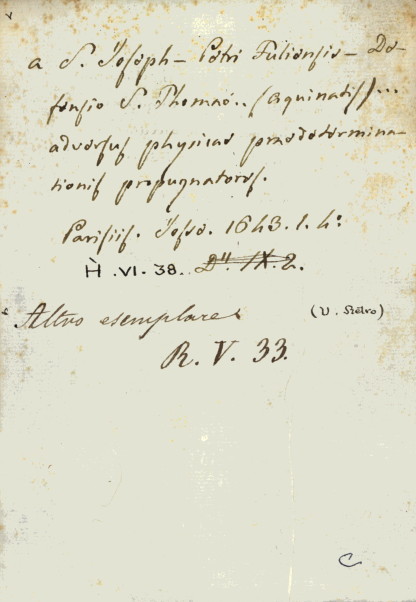 a S. Joseph - Petri Fuliensis - De-
fensio S. Thomae.. (Aquinatis)...
adversus physicae praedetermina-
tionis propugnatores.
Parisiis. Josse. 1643. 1. 4º
H .VI. 38. D". IX. 2.
Altro esemplare (V. Retro)
R. V. 33.
C